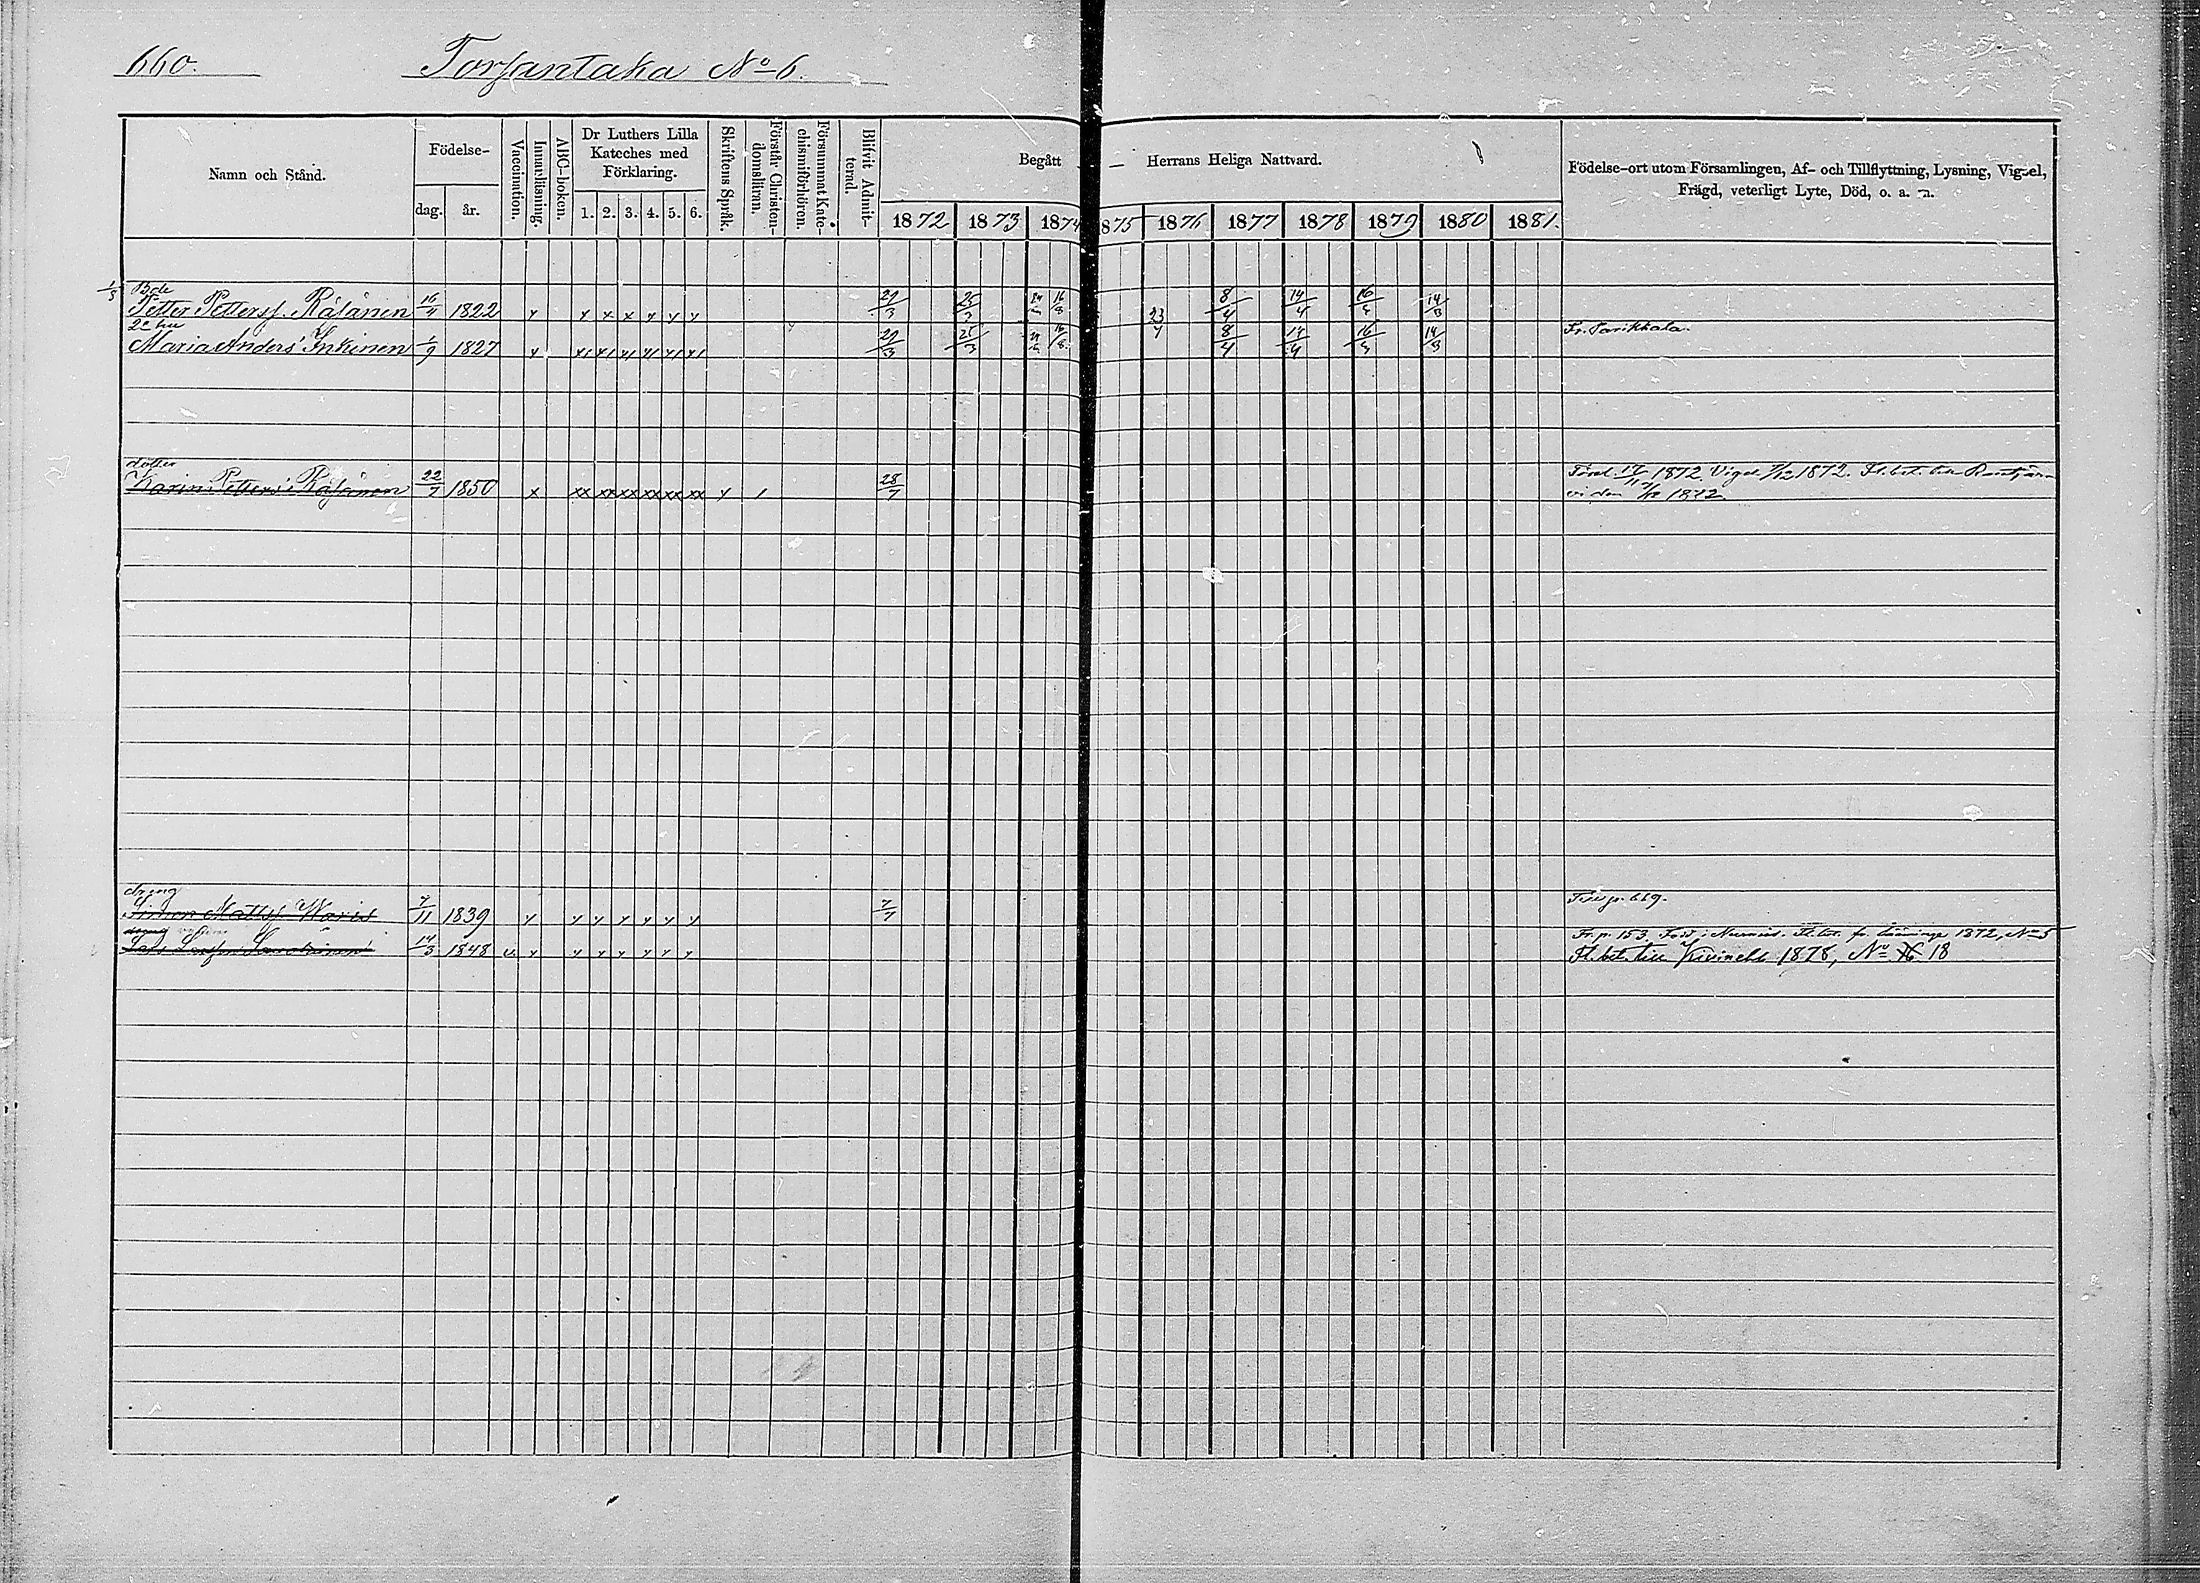 660. Torsantaka No 6.
Namn och Stånd. Födelse- dag. år. Vaccination. Innanläsning. ABC-boken. Dr Luthers Lilla Kateches med Förklaring. 1. 2. 3. 4. 5. 6. Skriftens Språk. Förstår Christen-domsläran. Försummat Kate-chismiförhören. Blifvit Admit-terad. Begått — Herrans Heliga Nattvard. 1872 1873 1874 1875 1876 1877 1878 1879 1880 1881. Födelse-ort utom Församlingen, Af- och Tillflyttning, Lysning, Vigsel, Frägd, veterligt Lyte, Död, o. a. n.
1/3 Bde
Petter Petterss. Räsänen 16/4 1822 x x x x x x x 29/3 25/3 16/8 23/4 8/4 14/4 16/3 14/3
2a hu
Maria Anders Inkinen 1/9 1827 29/3 25/3 16/8 8/4 14/4 16/3 14/3 Fr. Parikkala.
dotter
Karin Petters Räsänen 22/7 1850 x xx xx xx xx xx xx 28/7 1872. Vigd 1872. Fl. bet. till
den 1872
dreng
Simon Mattss. Waris 7/11 1839 7/7 669.
dreng
14/3 1848 v. Fr. p. 153. Fl. bet. fr. 1872, No 5
Fl. bet. till Kivineb 1878, No 18